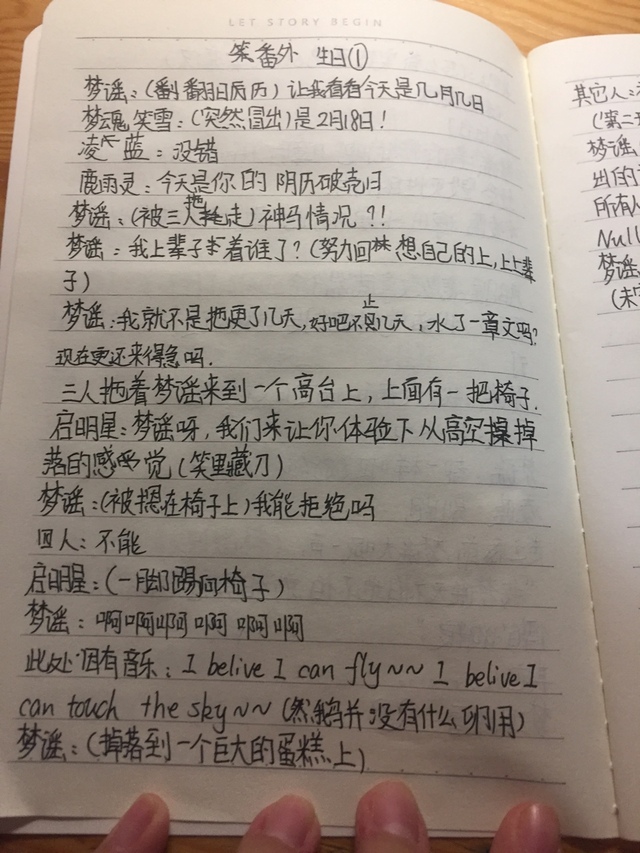 LET STORY BEGIN
笨番外 生日①
梦谣：(翻翻日历)让我看看今天是几月几日
梦魂笑雪：(突然冒出)是2月18日！
凌蓝：没错
鹿雨灵：今天是你的阴历破壳日
梦谣：(被三人拖走)神马情况？!!
梦谣：我上辈子惹着谁了？(努力回想自己的上,上上辈
子)
梦谣：我就不是拖更了几天,好吧不止几天，水了一章文吗？
现在更还来得急吗.
三人拖着梦谣来到一个高台上，上面有一把椅子.
启明星：梦谣呀，我们来让你体验下从高空掉
落的感觉(笑里藏刀)
梦谣：(被摁在椅子上)我能拒绝吗
四人：不能
启明星：(一脚踢向椅子)
梦谣：啊啊啊啊啊啊
此处因有音乐：I belive I can fly~~ I belive I
can touch the sky~~ (然鹅并没有什么卵用)
梦谣：(掉落到一个巨大的蛋糕上)
其它人：
(第二
梦谣
出的
所有人
Null
梦谣
(未完